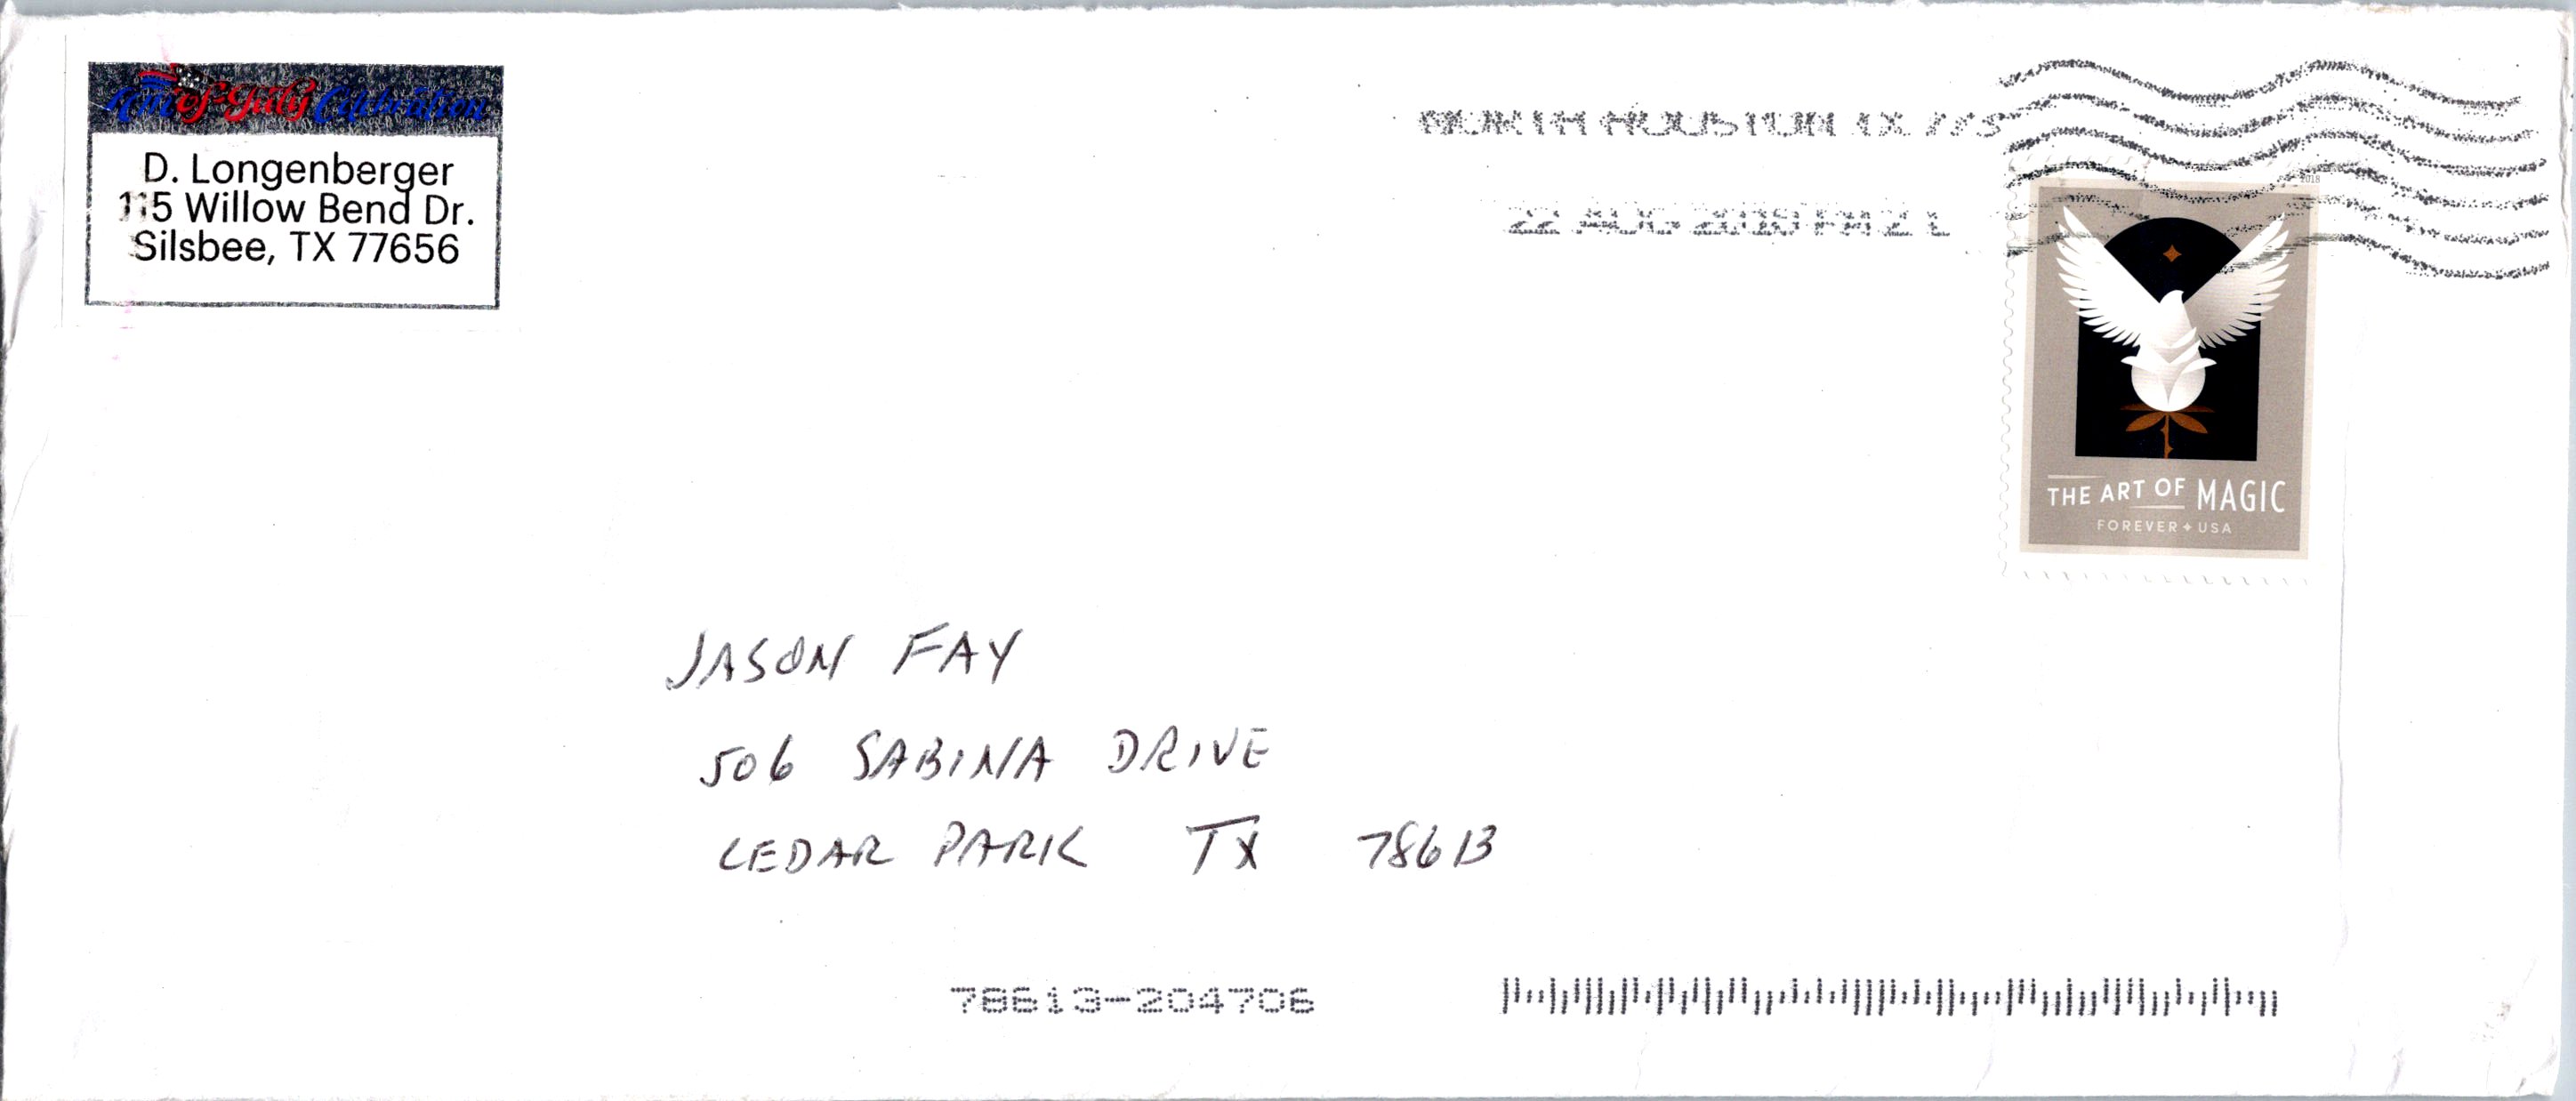 of-July Celebration
D. Longenberger
115 Willow Bend Dr.
Silsbee, TX 77656
NORTH HOUSTON TX 773
22 AUG 2018 PM 2 L
2018
THE ART OF MAGIC
FOREVER USA
JASON FAY
506 SABINA DRIVE
CEDAR PARK TX 78613
78613-204706